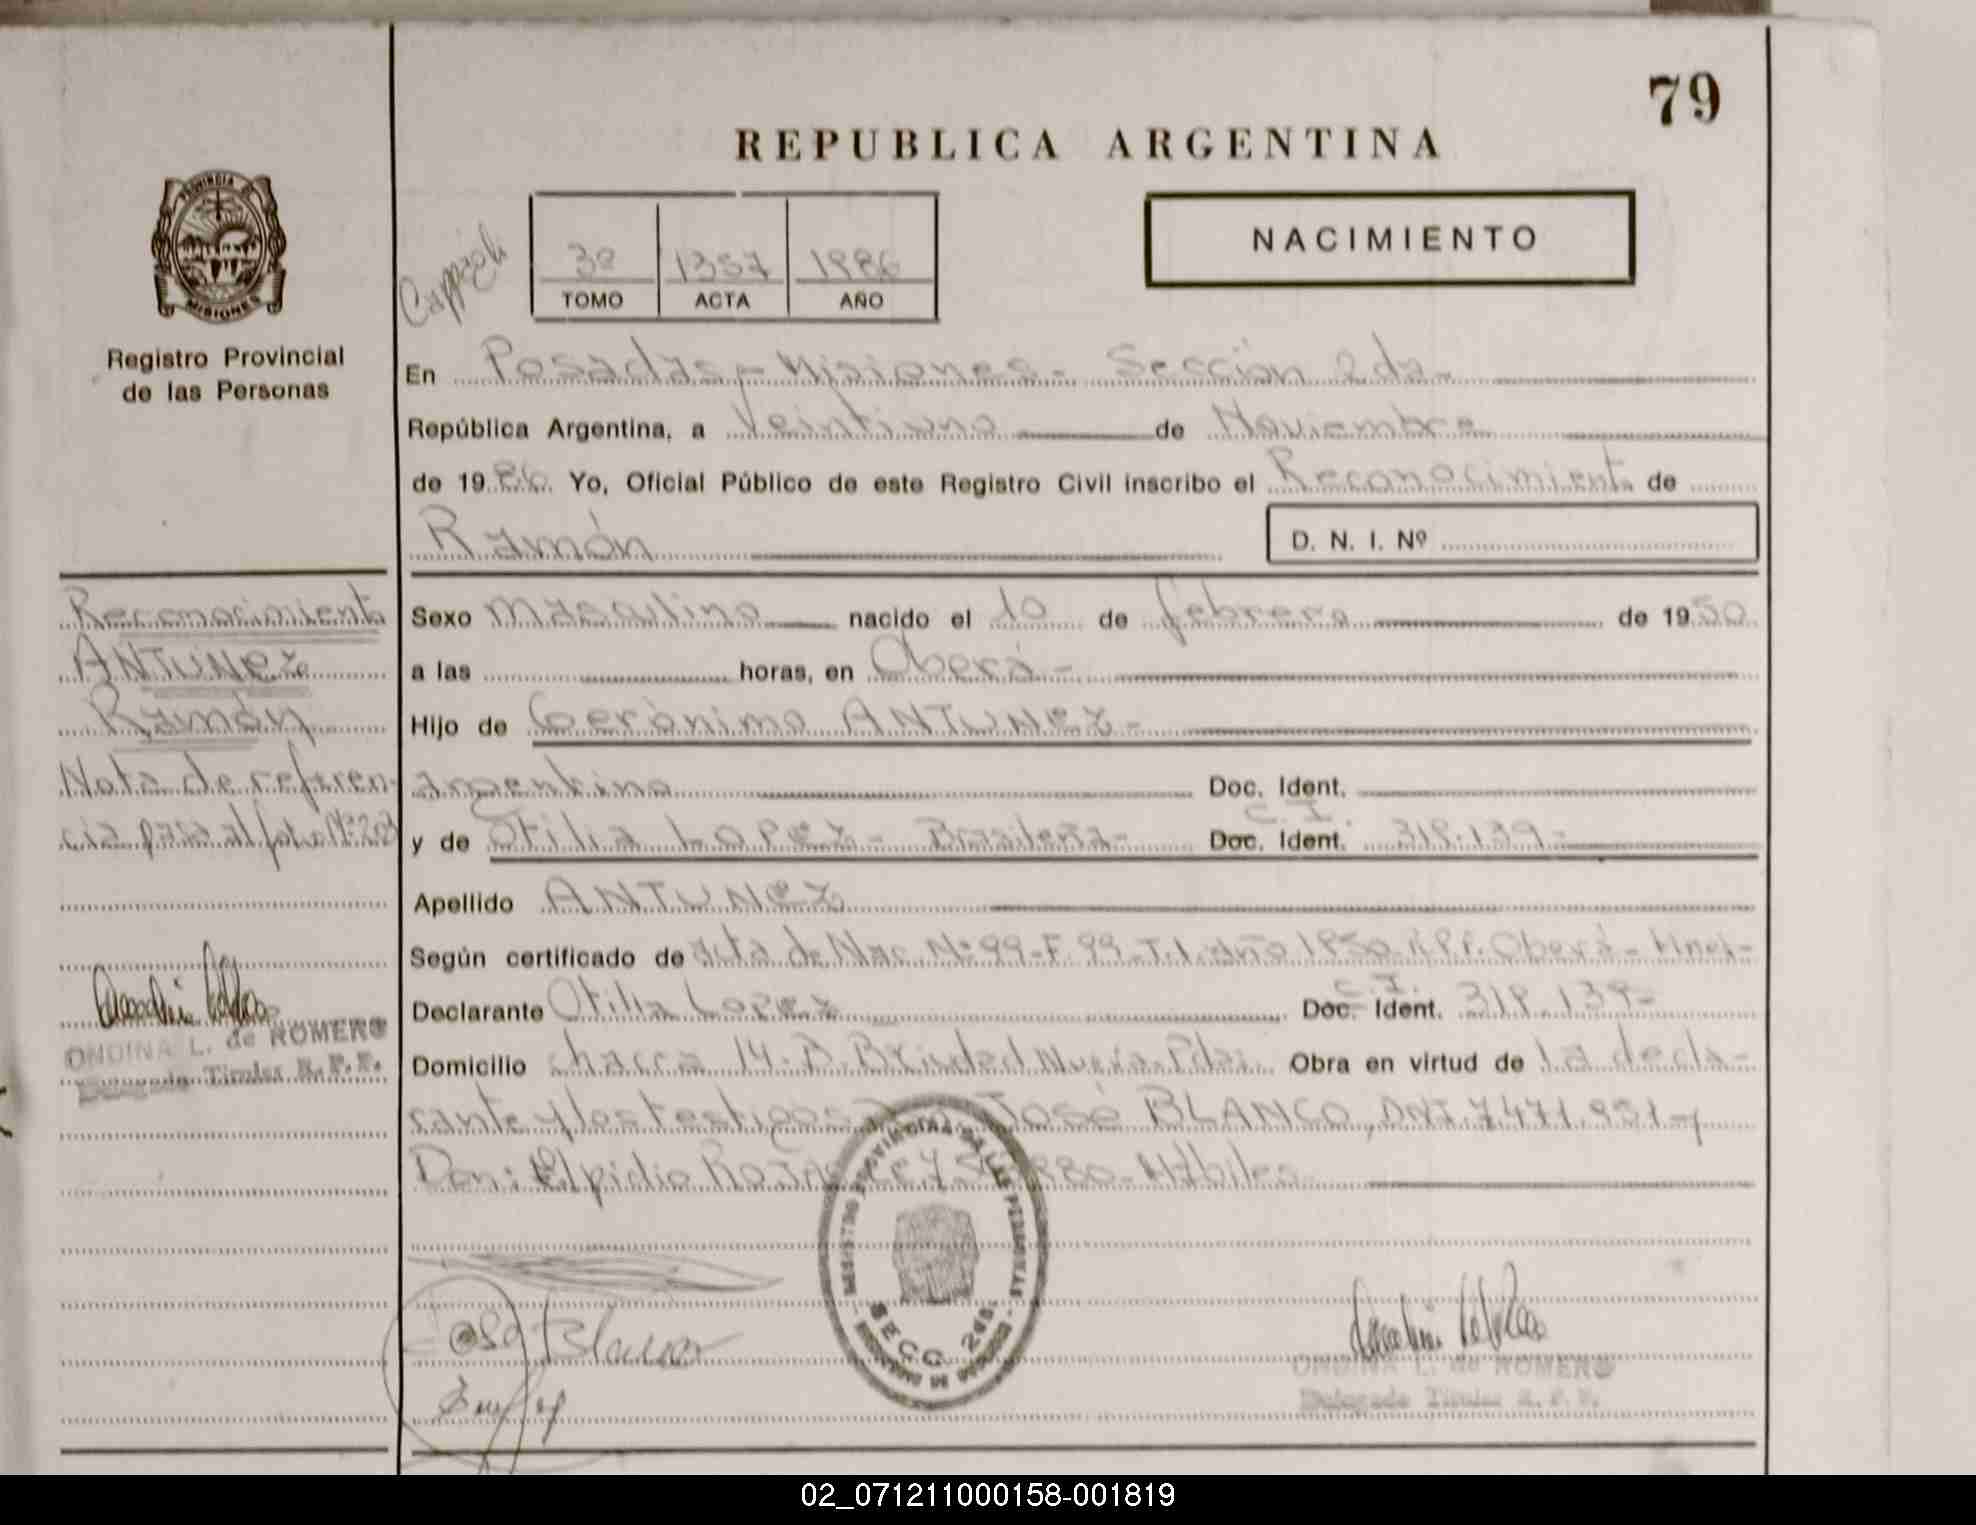 79
REPUBLICA ARGENTINA
PROVINCIA DE
MISIONES
Registro Provincial
de las Personas
3º 1357 1986
TOMO ACTA AÑO
NACIMIENTO
En Posadas - Misiones - Sección 2da -
República Argentina, a Veintiuno de Noviembre
de 1986 Yo, Oficial Público de este Registro Civil inscribo el Reconocimiento de
Ramón D. N. I. Nº
Reconocimiento
ANTUNEZ
Ramón
Nota de referen-
cia pasa al folio Nº
ONDINA L. de ROMERO
Delegada Titular R. P. P.
Sexo Masculino nacido el 10 de febrero de 1950
a las horas, en Oberá -
Hijo de Gerónimo ANTUNEZ -
argentino Doc. Ident.
C. I.
y de Otilia LOPEZ - Brasileña - Doc. Ident. 318.139 -
Apellido ANTUNEZ
Según certificado de acta de Nac. Nº 99 - F. 99 - T. I. año 1950 R.P.P. Oberá - Mnes -
C. I.
Declarante Otilia Lopez Doc. Ident. 318.139 -
Domicilio chacra 14 - Nueva Pdas. Obra en virtud de la decla-
rante y los testigos José BLANCO, DNI 7.471.951 - y
Don: Elpidio ROJAS 980 - Hábiles
REGISTRO PROVINCIAL DE LAS PERSONAS
SECC. 2da.
José Blanco
ONDINA L. de ROMERO
Delegada Titular R. P. P.
02_071211000158-001819